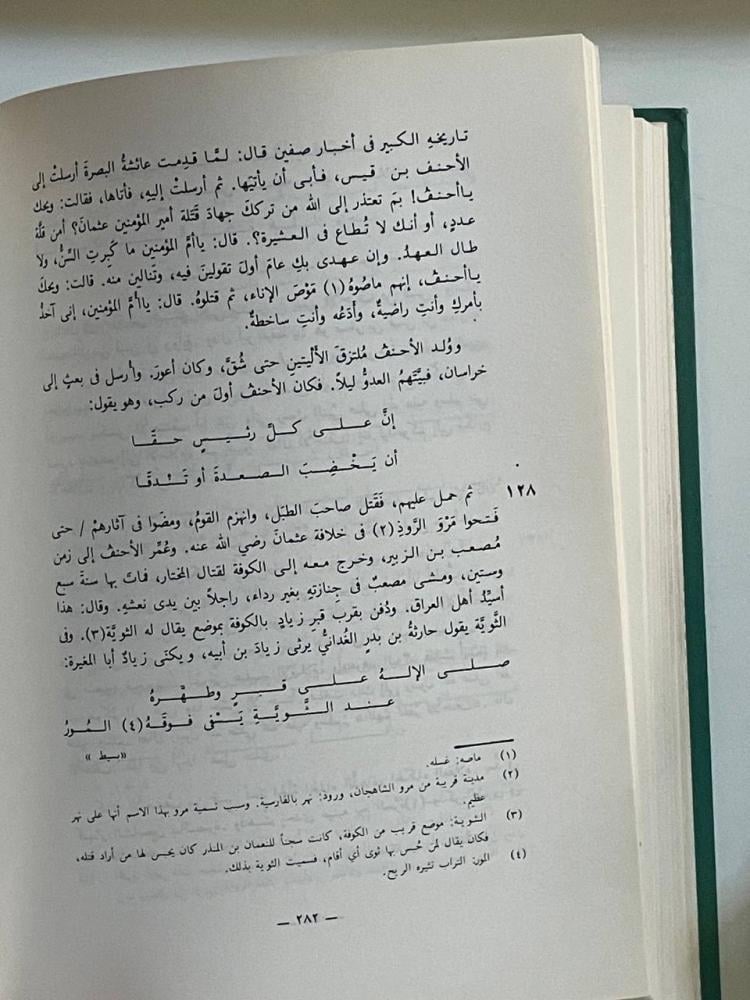 تاريخهِ الكبير فى أخبار صفين قال: لـمَّا قدِمت عائشةُ البصرةَ أرسلتْ إلى
الأحنف بن قيس، فـأبـى أن يأتيَها. ثم أرسلتْ إليهِ، فأتاها، فقالت: ويحك
ياأحنفُ! بمَ تعتذر إلى الله من تركك جهادَ قَتَلة أميرِ المؤمنين عثمانَ؟ أمن قلَّة
عددٍ، أو أنك لا تُـطـاع فى العـشيرة؟. قال: ياأمَّ المؤمنين ما كَبِرتِ السِّنُّ، ولا
طال العـهدُ. وإن عـهدى بكِ عامَ أولَ تقولينَ فيه، وتَنالين منه. قالت: ويحكَ
يـاأحنفُ، إنهم ماصُوهُ (١) مَوْصَ الإناء، ثم قتلوهُ. قال: ياأمَّ المؤمنين، إنى آخذُ
بأمركِ وأنتِ راضيةٌ، وأَدَعُه وأنتِ ساخطةٌ.
ووُلد الأحنفُ مُلتزقَ الأَلْيتينِ حتى شُقَّ، وكان أعورَ. وأرسل فى بعثٍ إلى
خراسان، فبيَّتهمُ العدوُّ ليلًا. فكان الأحنفُ أولَ من ركب، وهو يقول:
إنَّ عـــلـــى كـــلِّ رئـيـسٍ حـــقَّـــا
أن يَـخْـضِـبَ الـصـعـدةَ أو تَـنْـدقَّـا
١٢٨
ثم حمل عليهم، فقَتل صاحبَ الطبْل، وانهزم القومُ، ومضَوا فى آثارهمْ / حتى
فَـتحوا مَرْوَ الرُّوذِ (٢) فى خلافة عثمانَ رضي الله عنه. وعُمِّر الأحنفُ إلى زمن
مُـصعب بـن الـزبير، وخرج معه إلـى الكوفة لقتال المختار، فمات بها سنةَ سبع
وستين، ومشى مصعبٌ فى جِنازتهِ بغير رداء، راجلًا بين يدى نعشهِ. وقال: هذا
أسيِّدُ أهل العراق. ودُفن بقربِ قبر زيادٍ بالكوفة بموضع يقال له الثويَّة (٣). وفى
الثُّوِيَّة يقول حارثةُ بن بدرٍ الغُدانىُّ يرثى زيادَ بن أبيه، ويكنَى زيادٌ أبا المغيرة:
صـــلـــى الإلـــهُ عـــلـــى قـــبـــرٍ وطـــهَّـــرهُ
عـــنـــد الـــثُّـــوِيَّـــةِ يَـــسْـــفى فـــوقَـــهُ (٤) الـــمُـــورُ
«بسيط»
(١) ماصه: غسله.
(٢) مدينة قريبة من مرو الشاهجان، ورود: نهر بالفارسية. وسبب تسمية مرو بهذا الاسم أنها على نهر
عظيم.
(٣) الثوية: موضع قريب من الكوفة، كانت سجناً للنعمان بن المنذر كان يحبس لها من أراد قتله،
فكان يقال لمن حُبس بها ثوى أي أقام، فسميت الثوية بذلك.
(٤) المور: التراب تثيره الريح.
— ٢٨٢ —